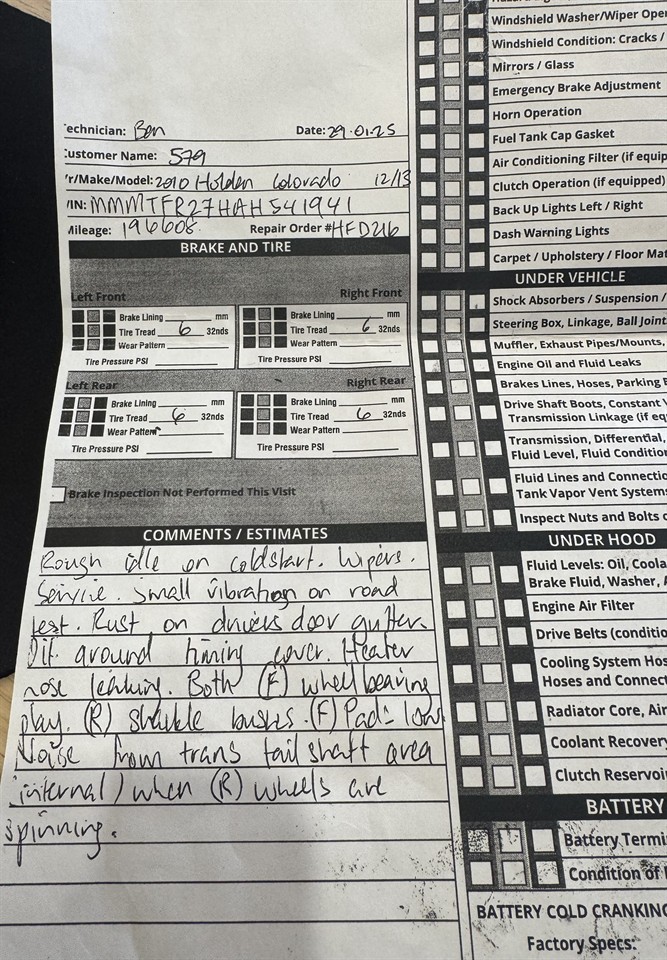 Technician: Ben Date: 29.01.25
Customer Name: 579
Yr/Make/Model: 2010 Holden Colorado 12/13
VIN: MMMTFR27HAH541941
Mileage: 196608. Repair Order # HFD216
BRAKE AND TIRE
Left Front
Right Front
Brake Lining mm
Tire Tread 6 32nds
Wear Pattern
Tire Pressure PSI
Brake Lining mm
Tire Tread 6 32nds
Wear Pattern
Tire Pressure PSI
Left Rear
Right Rear
Brake Lining mm
Tire Tread 6 32nds
Wear Pattern
Tire Pressure PSI
Brake Lining mm
Tire Tread 6 32nds
Wear Pattern
Tire Pressure PSI
Brake Inspection Not Performed This Visit
COMMENTS / ESTIMATES
Rough idle on coldstart. Wipers.
Service. Small vibration on road
test. Rust on drivers door gutter.
around timing cover. Heater
hose leaking. Both (F) wheel bearing
play. (R) shackle bushs. (F) Pads low
Noise from trans tail shaft area
internal) when (R) wheels are
spinning.
Windshield Washer/Wiper Oper
Windshield Condition: Cracks /
Mirrors / Glass
Emergency Brake Adjustment
Horn Operation
Fuel Tank Cap Gasket
Air Conditioning Filter (if equip
Clutch Operation (if equipped)
Back Up Lights Left / Right
Dash Warning Lights
Carpet / Upholstery / Floor Mat
UNDER VEHICLE
Shock Absorbers / Suspension /
Steering Box, Linkage, Ball Joint
Muffler, Exhaust Pipes/Mounts,
Engine Oil and Fluid Leaks
Brakes Lines, Hoses, Parking B
Drive Shaft Boots, Constant V
Transmission Linkage (if eq
Transmission, Differential,
Fluid Level, Fluid Condition
Fluid Lines and Connectio
Tank Vapor Vent Systems
Inspect Nuts and Bolts o
UNDER HOOD
Fluid Levels: Oil, Coola
Brake Fluid, Washer, A
Engine Air Filter
Drive Belts (conditio
Cooling System Hos
Hoses and Connect
Radiator Core, Air
Coolant Recovery
Clutch Reservoi
BATTERY
Battery Termi
Condition of
BATTERY COLD CRANKING
Factory Specs: